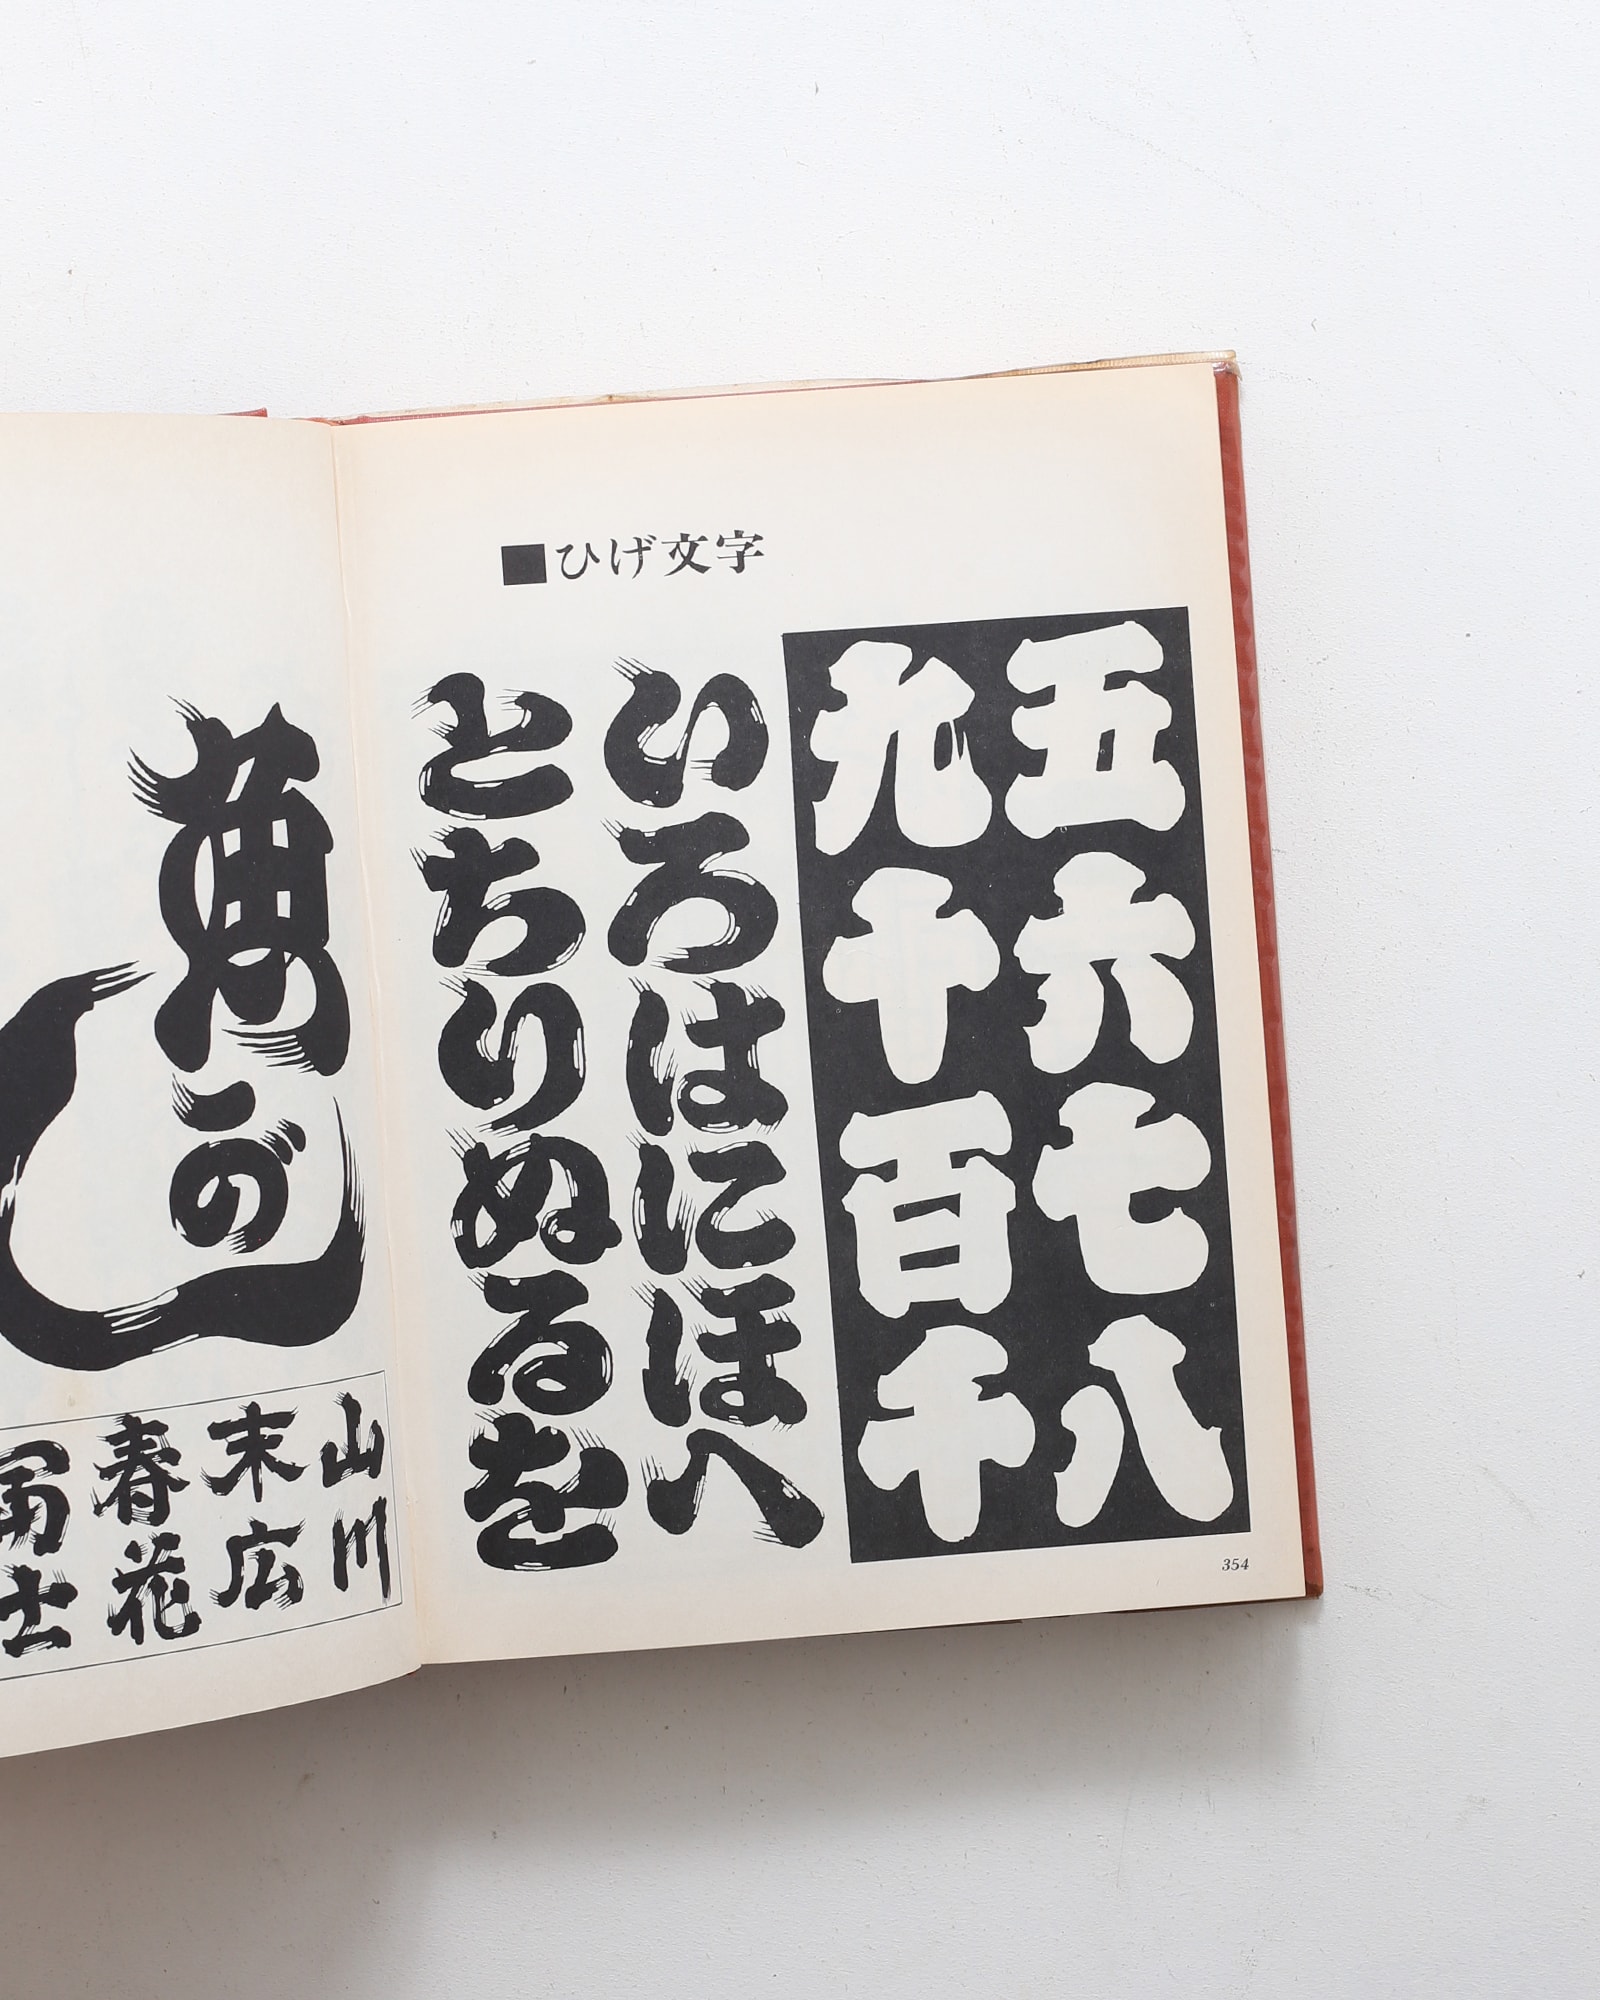 ■ひげ文字
五六七八
九十百千
いろはにほへ
とちりぬるを
354
山川
末広
春花
冨士